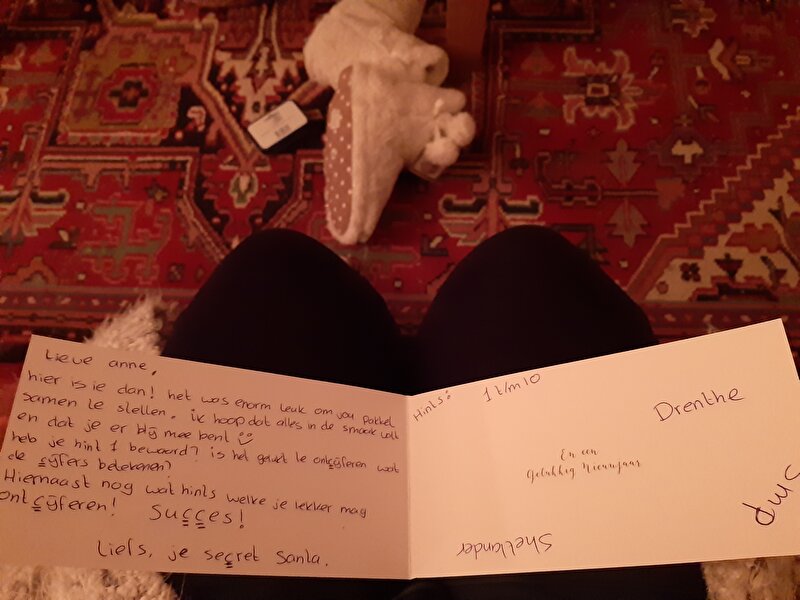 Lieve anne,
hier is ie dan! het was enorm leuk om jou pakket
samen te stellen. ik hoop dat alles in de smaak valt
en dat je er blij mee bent
heb je hint 1 bewaard? is het gelukt te ontcijferen wat
de cijfers betekenen?
Hiernaast nog wat hints welke je lekker mag
ontcijferen! Succes!
Liefs, je secret Santa.
Hints: 1 t/m 10
Drenthe
En een
Gelukkig Nieuwjaar
Shetlander